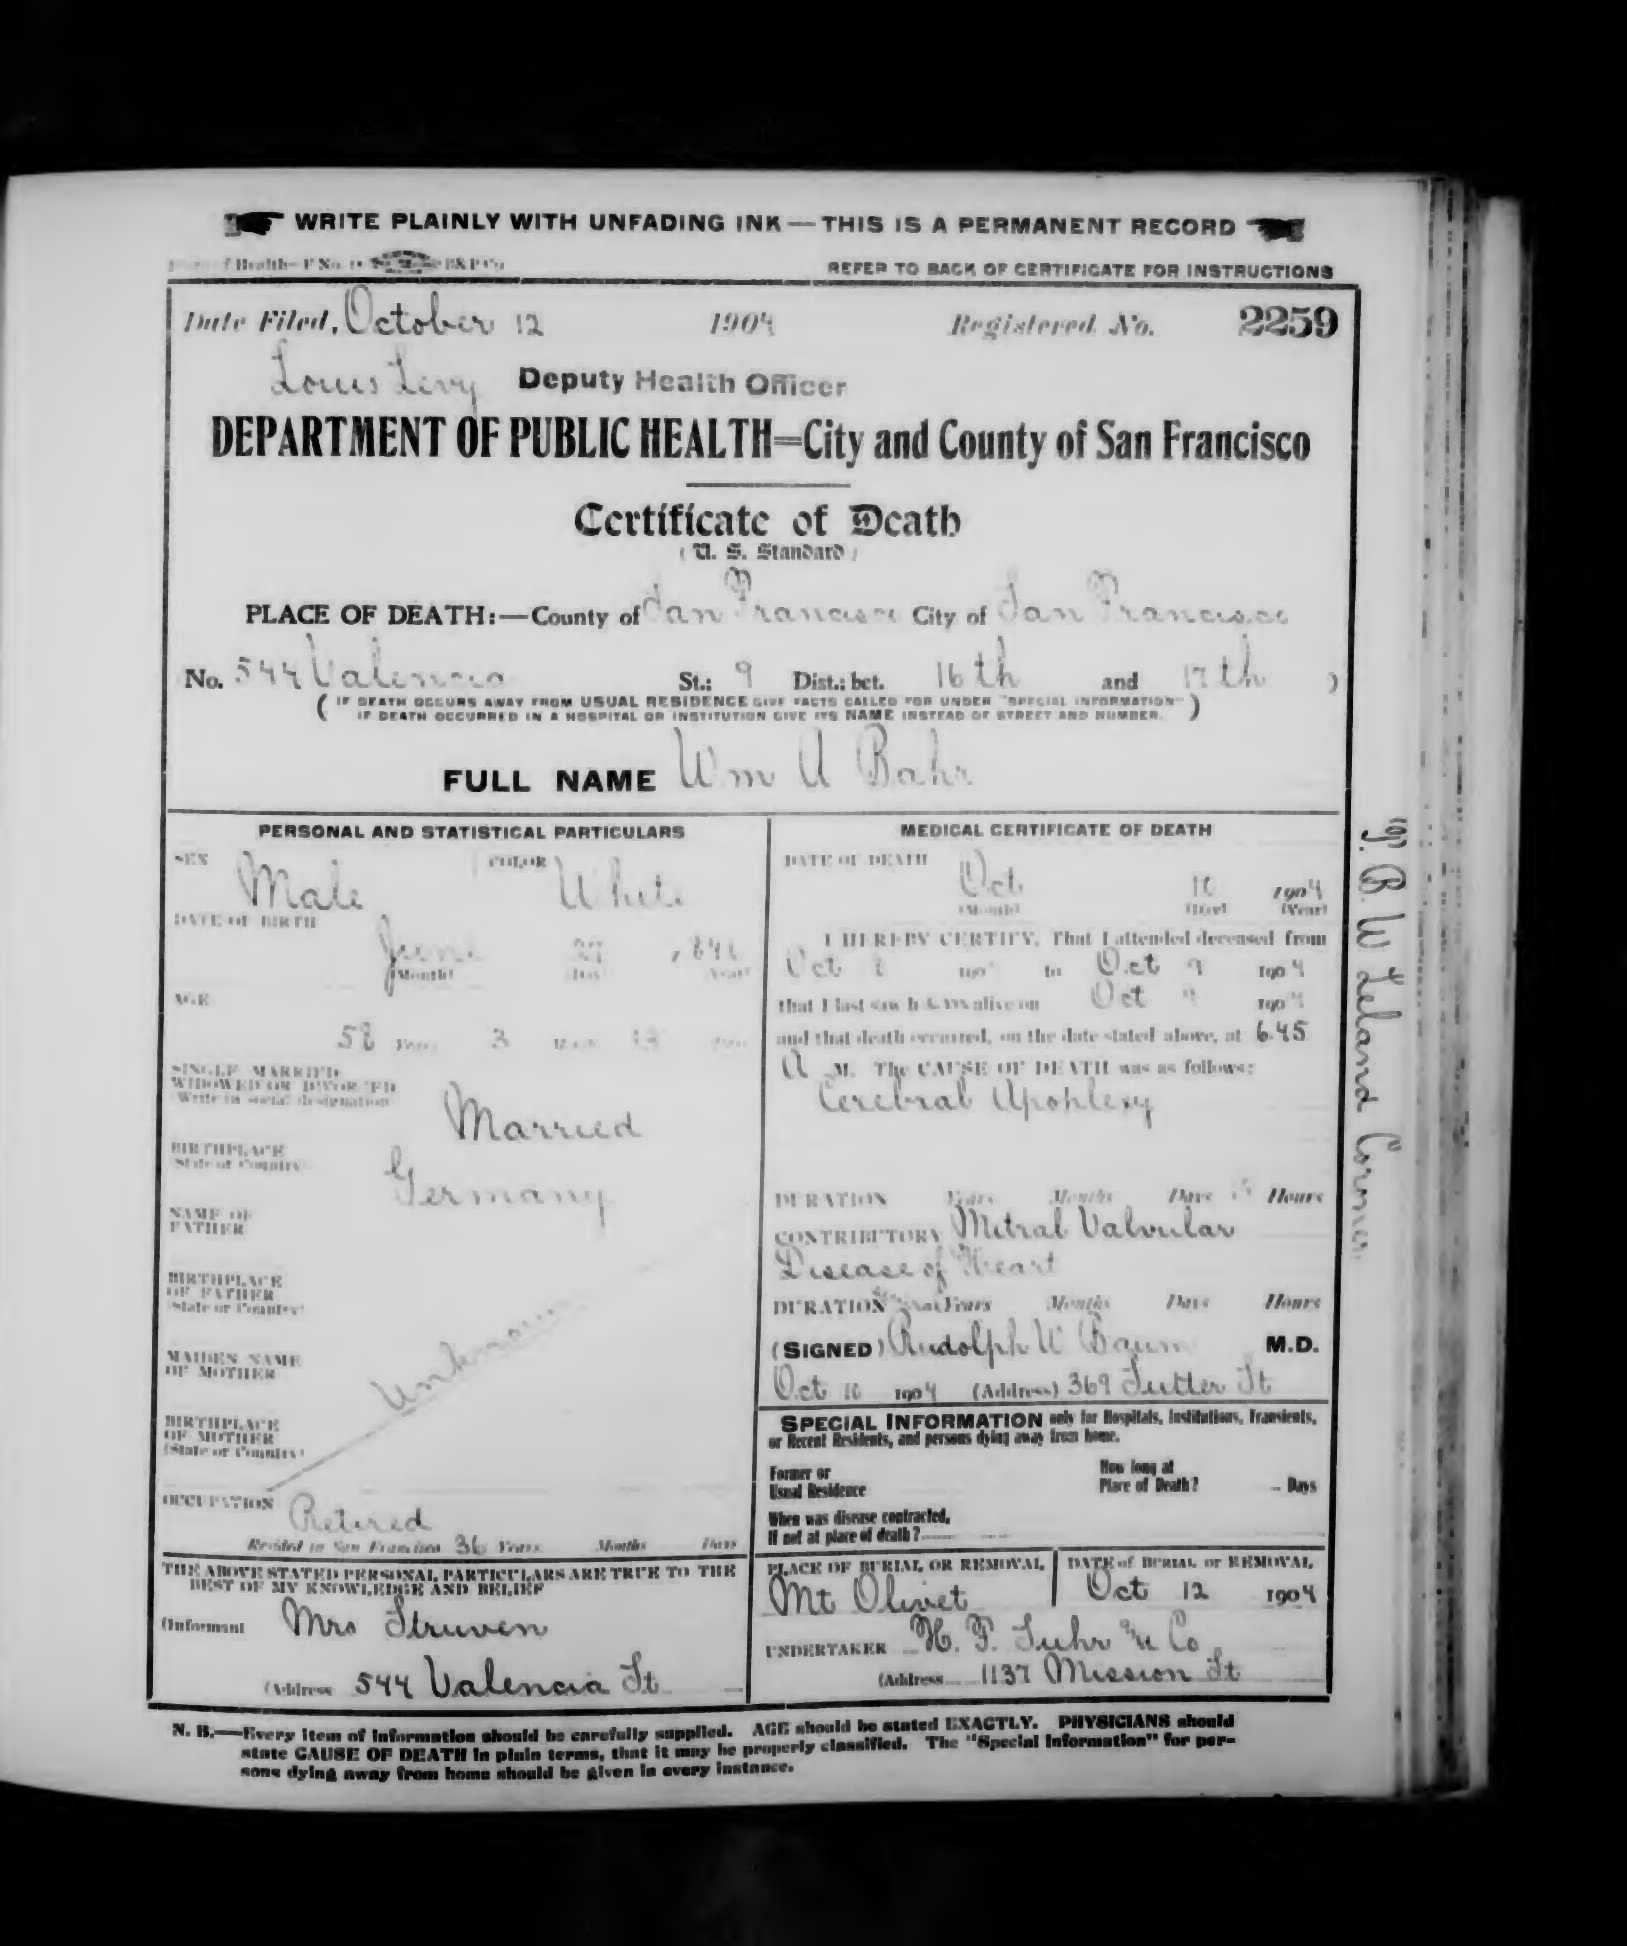 WRITE PLAINLY WITH UNFADING INK — THIS IS A PERMANENT RECORD
Health— F No. B&P Co
REFER TO BACK OF CERTIFICATE FOR INSTRUCTIONS
Date Filed, October 12 1904 Registered No. 2259
Louis Levy Deputy Health Officer
DEPARTMENT OF PUBLIC HEALTH=City and County of San Francisco
Certificate of Death
( U. S. Standard )
PLACE OF DEATH:—County of San Francisco City of San Francisco
No. 544 Valencia St.; 9 Dist.; bet. 16th and 17th )
( IF DEATH OCCURS AWAY FROM USUAL RESIDENCE GIVE FACTS CALLED FOR UNDER "SPECIAL INFORMATION"
IF DEATH OCCURRED IN A HOSPITAL OR INSTITUTION GIVE ITS NAME INSTEAD OF STREET AND NUMBER. )
FULL NAME Wm A Bahr
PERSONAL AND STATISTICAL PARTICULARS
SEX Male COLOR White
DATE OF BIRTH
June 27, 1846
(Month) (Day) (Year)
AGE
58 Years 3 Months 13 Days
SINGLE, MARRIED,
WIDOWED OR DIVORCED
(Write in social designation)
Married
BIRTHPLACE
(State or Country)
Germany
NAME OF
FATHER
BIRTHPLACE
OF FATHER
(State or Country)
MAIDEN NAME
OF MOTHER
Unknown
BIRTHPLACE
OF MOTHER
(State or Country)
OCCUPATION Retired
Resided in San Francisco 36 Years Months Days
THE ABOVE STATED PERSONAL PARTICULARS ARE TRUE TO THE
BEST OF MY KNOWLEDGE AND BELIEF
(Informant Mrs Struven
(Address 544 Valencia St
MEDICAL CERTIFICATE OF DEATH
DATE OF DEATH
Oct 10 1904
(Month) (Day) (Year)
I HEREBY CERTIFY, That I attended deceased from
Oct 190 to Oct 9 1904
that I last saw him alive on Oct 9 1904
and that death occurred, on the date stated above, at 6.45
A M. The CAUSE OF DEATH was as follows:
Cerebral Apoplexy
DURATION Years Months Days Hours
CONTRIBUTORY Mitral Valvular
Disease of Heart
DURATION Several Years Months Days Hours
(SIGNED) Rudolph W Baum M.D.
Oct 10 1904 (Address) 369 Sutter St
SPECIAL INFORMATION only for Hospitals, Institutions, Transients,
or Recent Residents, and persons dying away from home.
Former or
Usual Residence
How long at
Place of Death? Days
When was disease contracted,
If not at place of death?
PLACE OF BURIAL OR REMOVAL
Mt Olivet
DATE of BURIAL or REMOVAL
Oct 12 1904
UNDERTAKER H. F. Suhr & Co
(Address 1137 Mission St
N. B.—Every item of information should be carefully supplied. AGE should be stated EXACTLY. PHYSICIANS should
state CAUSE OF DEATH in plain terms, that it may be properly classified. The "Special Information" for per-
sons dying away from home should be given in every instance.
T. B. W Leland Coroner